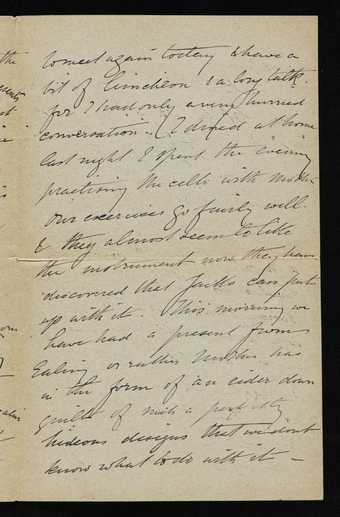 to meet again today & have a
bit of luncheon & a long talk.
for I had only a very hurried
conversation - I dined at home
last night & spent the evening
practising the cello with Mother
our exercises go fairly well.
& they almost seem to like
the instrument now they have
discovered that folks can put
up with it. This morning we
have had a present from
Ealing or rather Mother has
in the form of an eider down
quilt of such a perfectly
hideous design that we don't
know what to do with it -
the